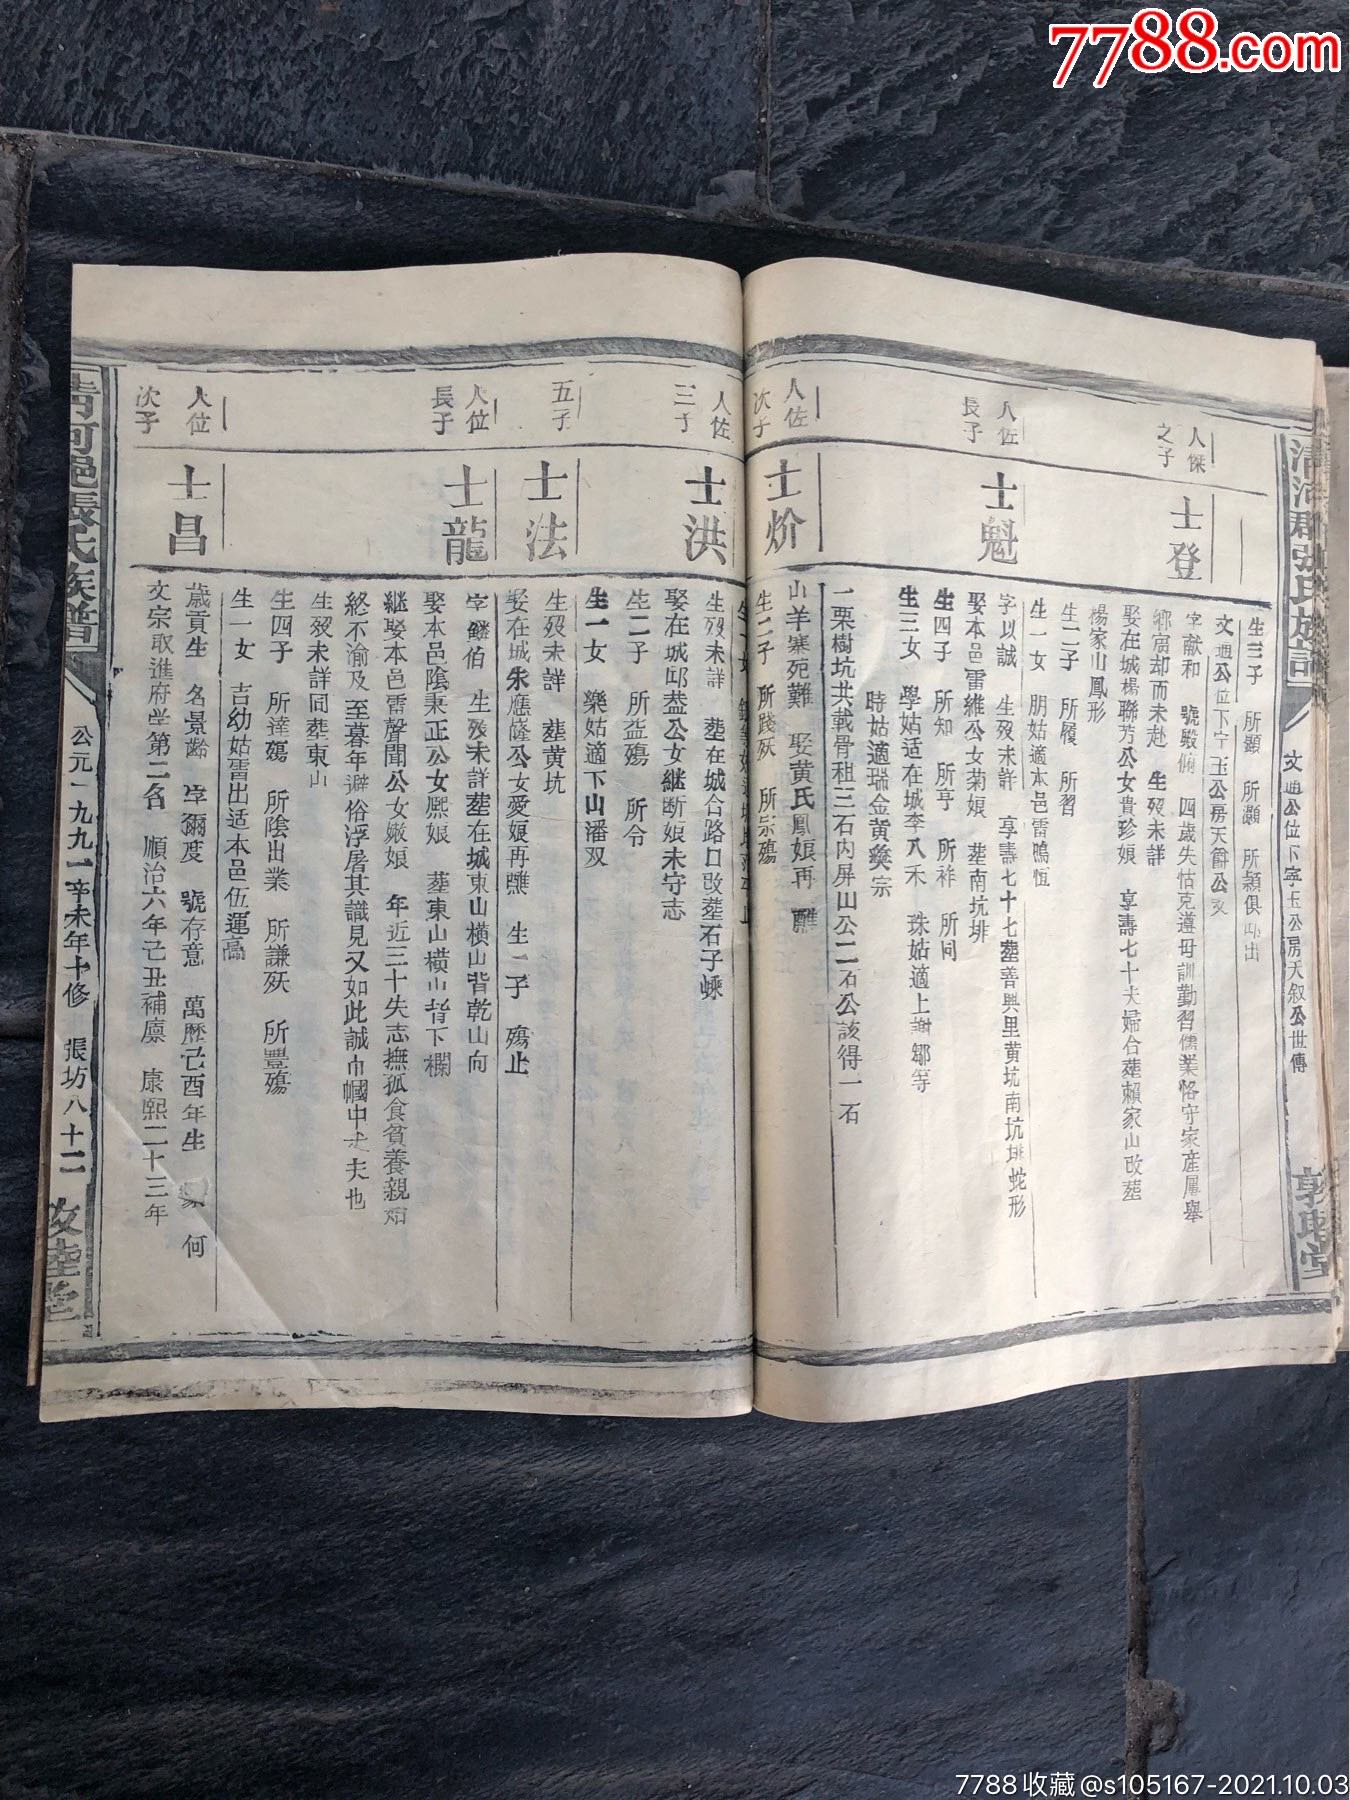 7788.com
清河郡張氏族譜
文通公位下寧玉公房天叙公世傳
敦睦堂
生三子 所顯 所灝 所穎俱邱出
文通公位下宁玉公房天爵公支
人傑之子
士登
字献和 號殿備 四歲失怙克遵母訓勤習儒業恪守家産屢舉
鄉賔却而未赴 生殁未詳
娶在城楊聯芳公女貴珍娘 享壽七十夫婦合塟賴家山改塟
楊家山鳳形
生二子 所履 所習
生一女 朋姑適本邑雷鴫恆
人佐長子
士魁
字以誠 生殁未詳 享壽七十七塟善興里黄坑南坑垪蛇形
娶本邑雷維公女菊娘 塟南坑垪
生四子 所知 所亨 所祚 所同
生三女 學姑适在城李八禾 珠姑適上謝鄒等
時姑適瑞金黄燊宗
一栗樹坑共載骨租三石内屏山公二石公該得一石
人佐次子
士炌
山羊寨死難 娶黄氏鳳娘再醮
生二子 所賤殀 所宗殤
人佐三子
士洪
生殁未詳 塟在城合路口改塟石子崠
娶在城邱葢公女継断娘未守志
生二子 所益殤 所令
生一女 樂姑適下山潘双
五子
士法
生殁未詳 塟黄坑
娶在城朱應隆公女愛娘再醮 生一子 殤止
人位長子
士龍
字麟伯 生殁未詳塟在城東山横山背乾山向
娶本邑陰秉正公女熈娘 塟東山横山背下欄
継娶本邑雷聲聞公女嫩娘 年近三十失志撫孤食貧養親始
終不渝及至暮年避俗浮屠其識見又如此誠巾幗中丈夫也
生殁未詳同塟東山
生四子 所達殤 所陰出業 所謙殀 所豐殤
生一女 吉幼姑雷出适本邑伍運高
人位次子
士昌
歲貢生 名景齡 字爾度 號存意 萬歷己酉年生 何
文宗取進府学第二名 順治六年己丑補廪 康熙二十三年
清河郡張氏族譜
公元一九九一辛未年十修 張坊八十二
敦睦堂
7788收藏@s105167-2021.10.03